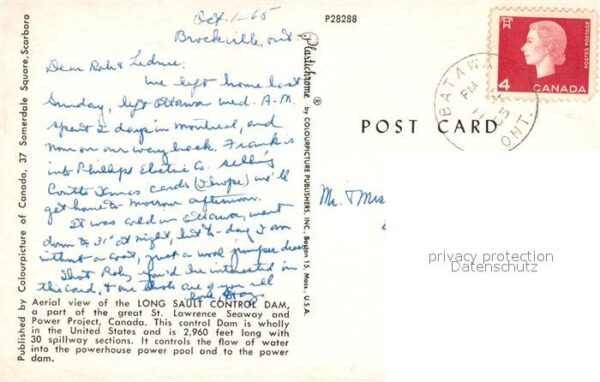 Oct. 1-65
Brockville, Ont
Dear Rob &
We left home last
Sunday, left Ottawa Wed. A.M.
spent 2 days in Montreal, and
now on our way back. Frank is
into Phillips Electric Co. selling
Coutts Xmas cards (I hope) we'll
get home to-morrow afternoon.
It was cold in Ottawa, went
down to 31° at night, but to-day I am
without a coat, just a wool jumper dress
That Rob, you'd be interested in
this card, & our thots are of you all
love,
Aerial view of the LONG SAULT CONTROL DAM,
a part of the great St. Lawrence Seaway and
Power Project, Canada. This control Dam is wholly
in the United States and is 2,960 feet long with
30 spillway sections. It controls the flow of water
into the powerhouse power pool and to the power
dam.
Published by Colourpicture of Canada, 37 Somerdale Square, Scarboro
P28288
Plastichrome ® by COLOURPICTURE PUBLISHERS, INC., Boston 15, Mass., U.S.A.
POST CARD
BATAWA
PM
65
ONT.
POSTES POSTAGE
4 CANADA
Mr. & Mrs
privacy protection
Datenschutz